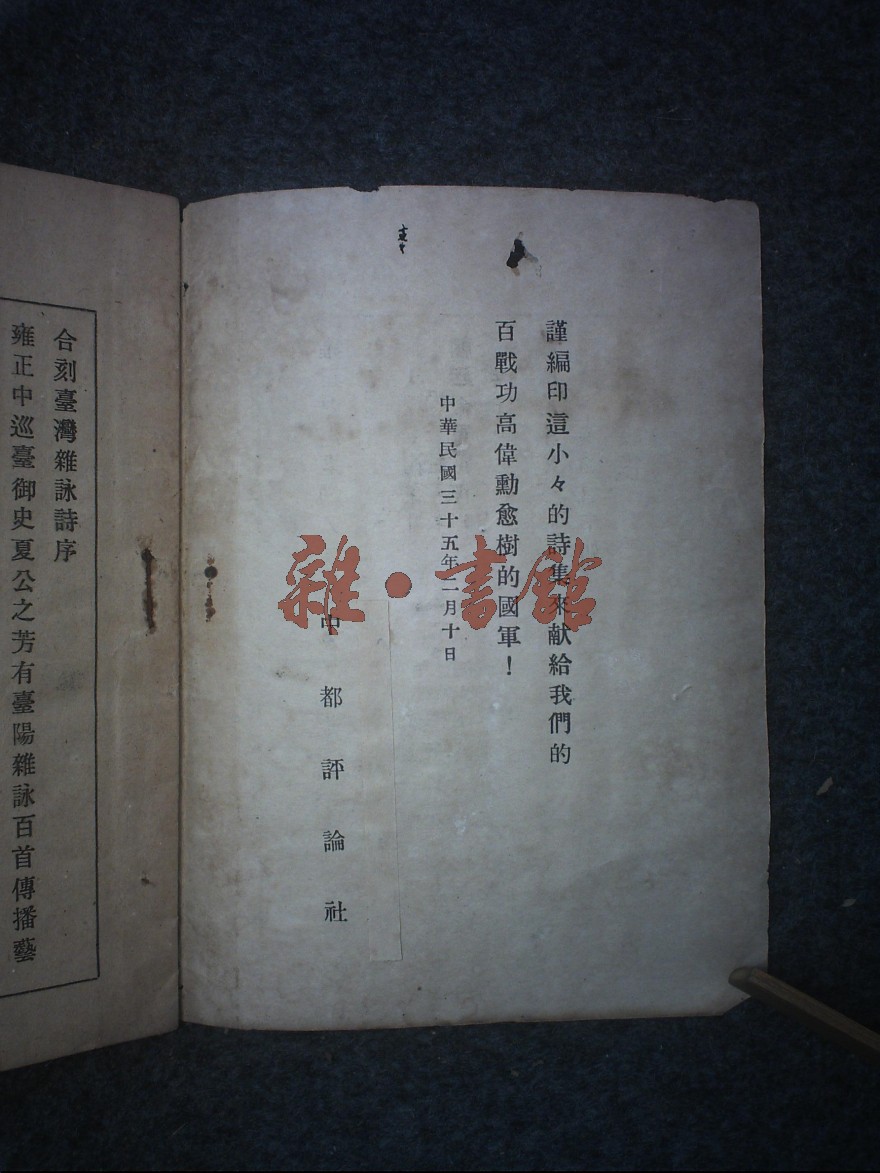 謹編印這小々的詩集來献給我們的
百戰功高偉勳愈樹的國軍！
中華民國三十五年二月十日
中都評論社
雜·書館
合刻臺灣雜詠詩序
雍正中巡臺御史夏公之芳有臺陽雜詠百首傳播藝